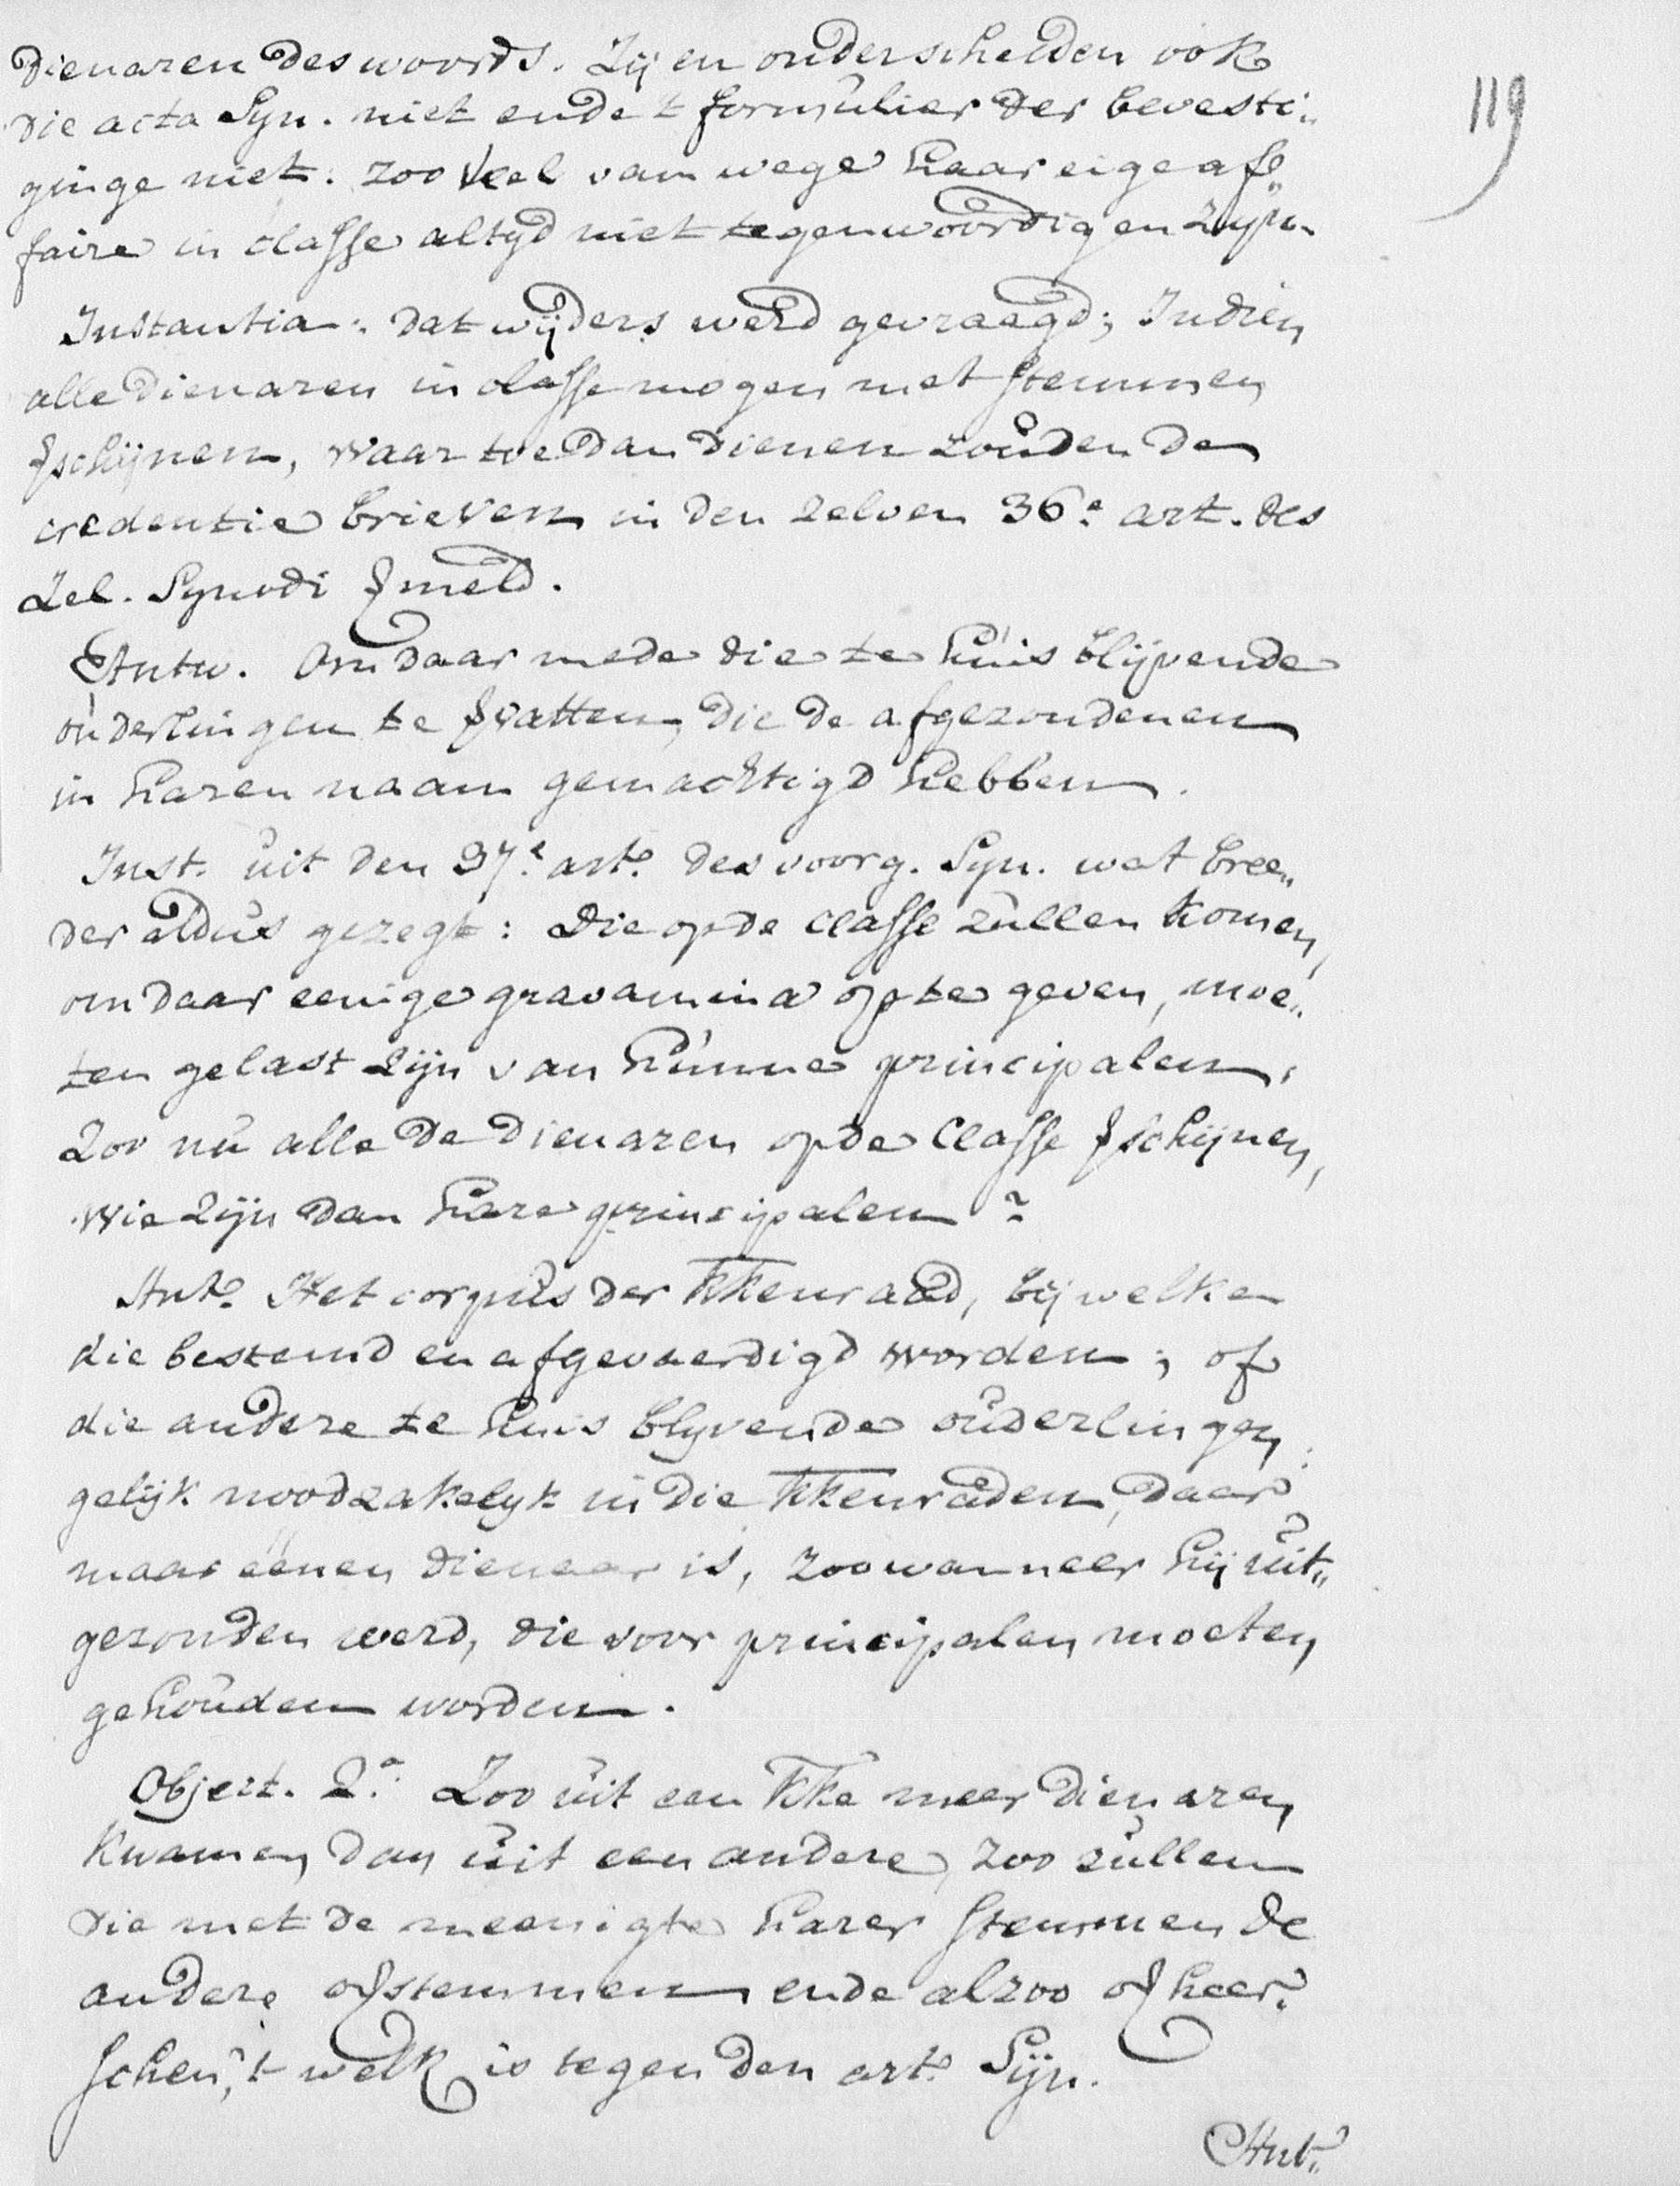 119
Dienaren des woords. Zij en onderscheiden ook
die acta Syn. niet ende t formulier der bevesti„
ginge niet: zoo veel van wege haar eige af„
faire in classe altyd niet tegenwoordig en zijn.
Instantia: dat wijders werd gevraagd; Indien
alle Dienaren in classe mogen met stemmen
schijnen, waar toe dan dienen zouden de
credentie brieven in den zelven 36e art. des
Zel. Synodi meld.
Antw. Om daar mede die te huis blijvende
ouderlingen te vatten, die de afgezondenen
in haren naam gemachtigd hebben.
Inst. uit den 37e arto des voorg. Syn. wat bree„
der aldus gezegt: Die op de classe zullen komen,
om daar eenige gravamina op te geven, moe„
ten gelast zijn van hunne principalen,
Zoo nu alle de Dienaren op de classe schijnen,
wie zijn dan hare principalen?
Anto. Het corpus der kkenraad, bij welke
die bestemd en afgevaerdigd worden; of
die andere te huis blyvende ouderlingen,
gelijk noodzakelyk in die kkenraden, daar
maar éénen dienaar is, zoo wanneer hij uit„
gezonden werd, die voor principalen moeten
gehouden worden.
Object. 2a. Zoo uit een kke meer dienaren
kwamen, dan uit een andere, zoo zullen
die met de meenigte harer stemmen de
andere stemmen ende alzoo heer„
schen, 't welk is tegen den arto Syn.
Ant„